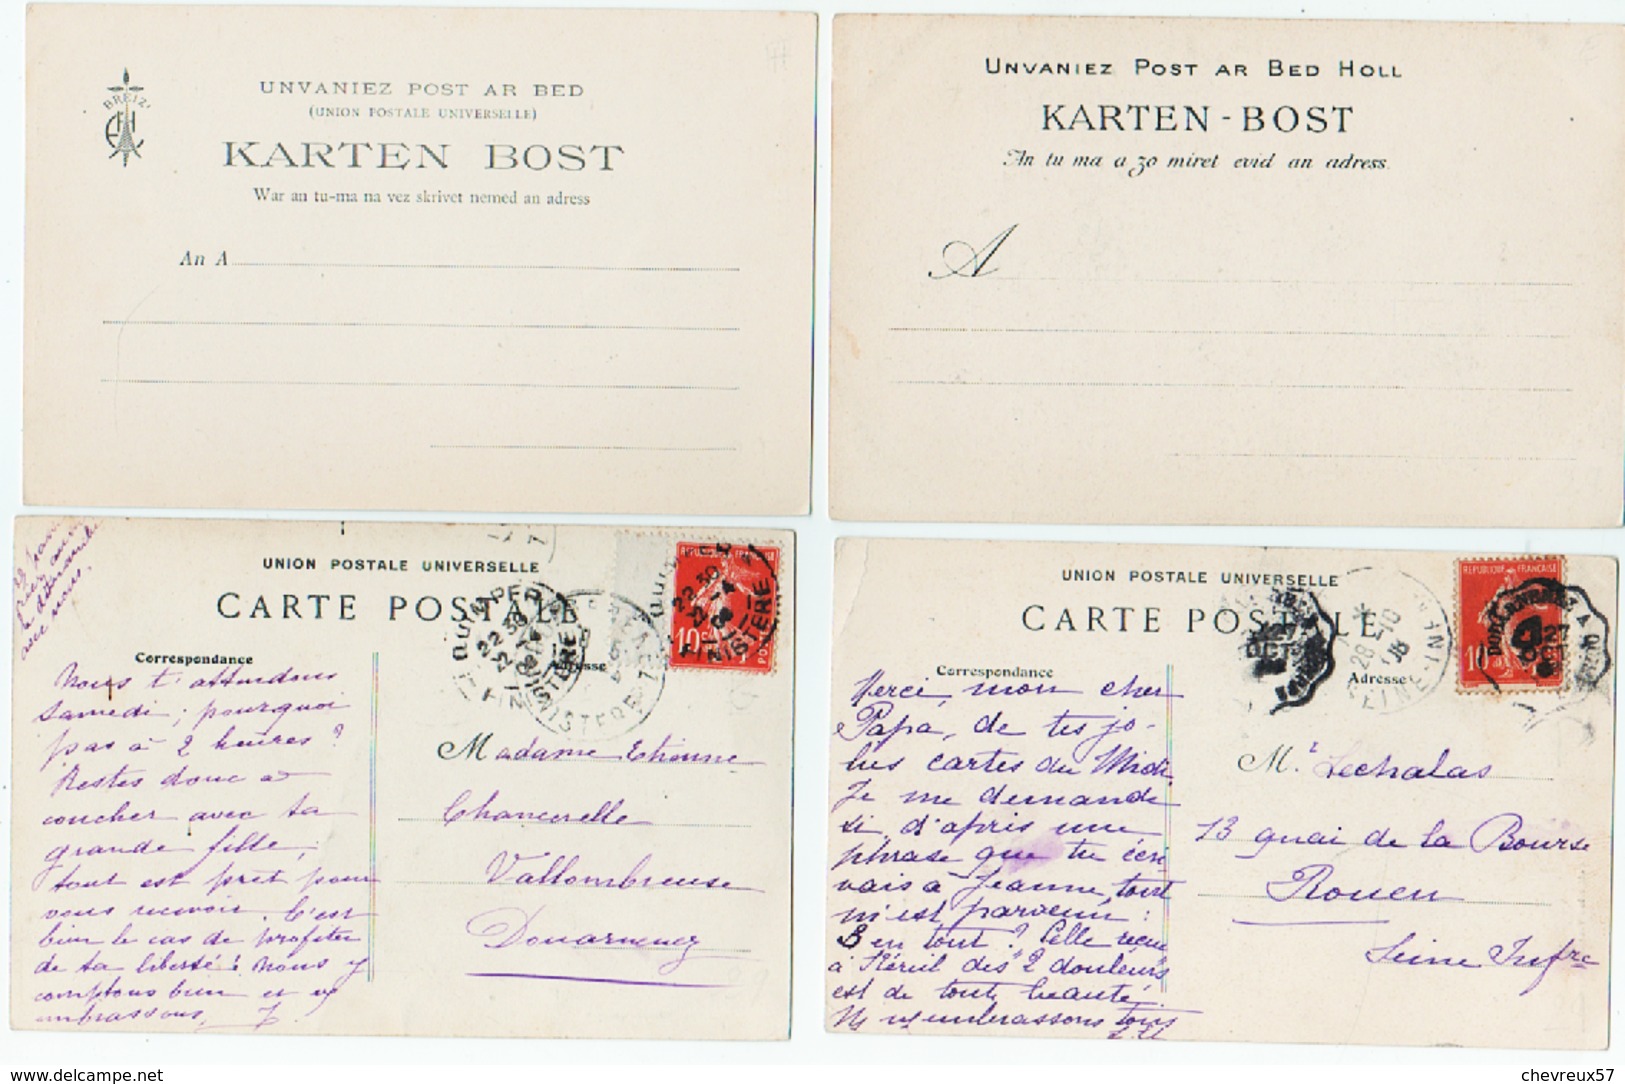 BREIZ
UNVANIEZ POST AR BED
(UNION POSTALE UNIVERSELLE)
KARTEN BOST
War an tu-ma na vez skrivet nemed an adress
An A
UNVANIEZ POST AR BED HOLL
KARTEN-BOST
An tu ma a zo miret evid an adress.
A
avec nous.
UNION POSTALE UNIVERSELLE
CARTE POSTALE
Correspondance
Adresse
QUIMPER
22 30
FINISTERE
REPUBLIQUE FRANÇAISE
10
Nous t'attendons
samedi; pourquoi
pas à 2 heures?
Restes donc à
coucher avec ta
grande fille;
tout est prêt pour
vous recevoir. C'est
bien le cas de profiter
de ta liberté! Nous y
comptons bien et vs
embrassons,
Madame Etienne
Chancerelle
Vallombreuse
Douarnenez
UNION POSTALE UNIVERSELLE
CARTE POSTALE
Correspondance
Adresse
27
OCT
28-10
REPUBLIQUE FRANÇAISE
10
27
OCT
Merci, mon cher
Papa, de tes jo-
lies cartes du Midi.
Je me demande
si, d'après une
phrase que tu écri
vais à Jeanne, tout
m'est parvenu:
3 en tout? Celle reçue
à des 2 douleurs
est de toute beauté.
Ns vs embrassons tous
Mr Lechalas
13 quai de la Bourse
Rouen
Seine Infre
delcampe.net
chevreux57